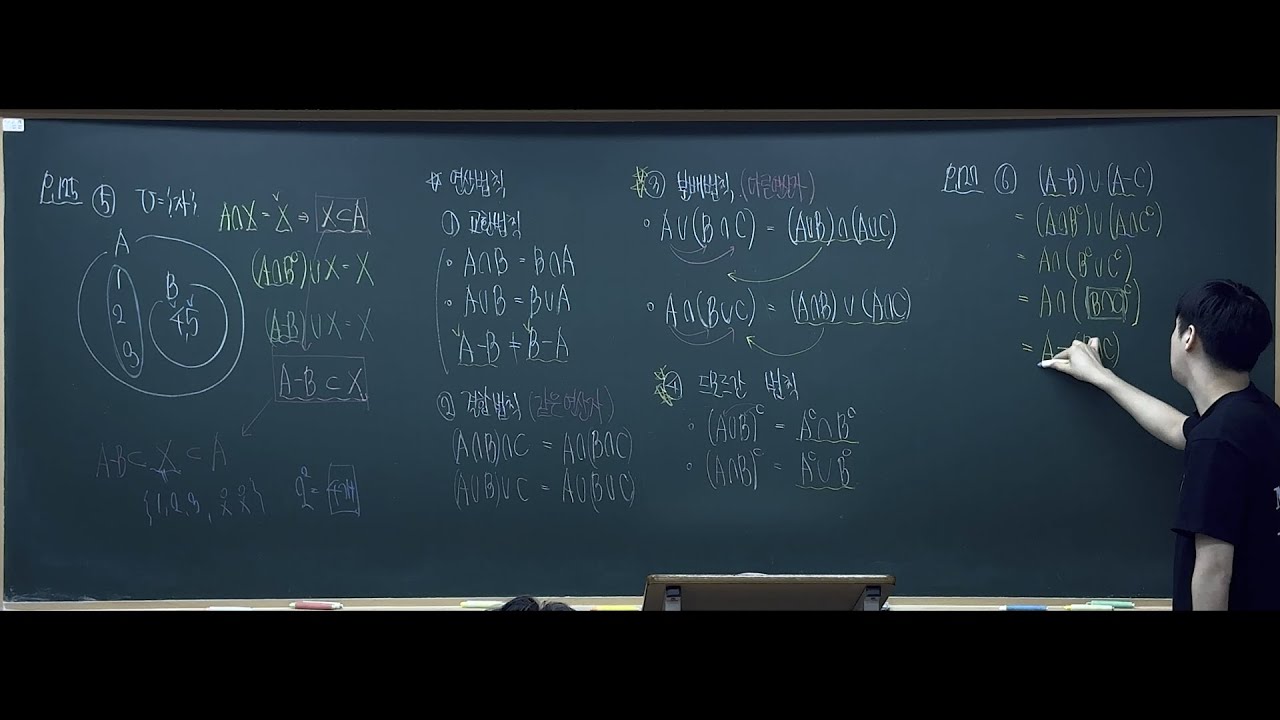 ⑤ U=자
A∩X = X ⇒ X⊂A
A
(A∩Bᶜ)∪X = X
1
B
2
4,5
(A-B)∪X = X
3
A-B ⊂ X
A-B ⊂ X ⊂ A
{1,2,3,
2² = 4개
연산법칙
① 교환법칙
• A∩B = B∩A
• A∪B = B∪A
A-B ≠ B-A
② 결합법칙 (같은연산자)
(A∩B)∩C = A∩(B∩C)
(A∪B)∪C = A∪(B∪C)
③ 분배법칙 (다른연산자)
• A∪(B∩C) = (A∪B)∩(A∪C)
• A∩(B∪C) = (A∩B)∪(A∩C)
④ 드모르간 법칙
• (A∪B)ᶜ = Aᶜ∩Bᶜ
• (A∩B)ᶜ = Aᶜ∪Bᶜ
⑥ (A-B)∪(A-C)
= (A∩Bᶜ)∪(A∩Cᶜ)
= A∩(Bᶜ∪Cᶜ)
= A∩((B∩C)ᶜ)
= A-